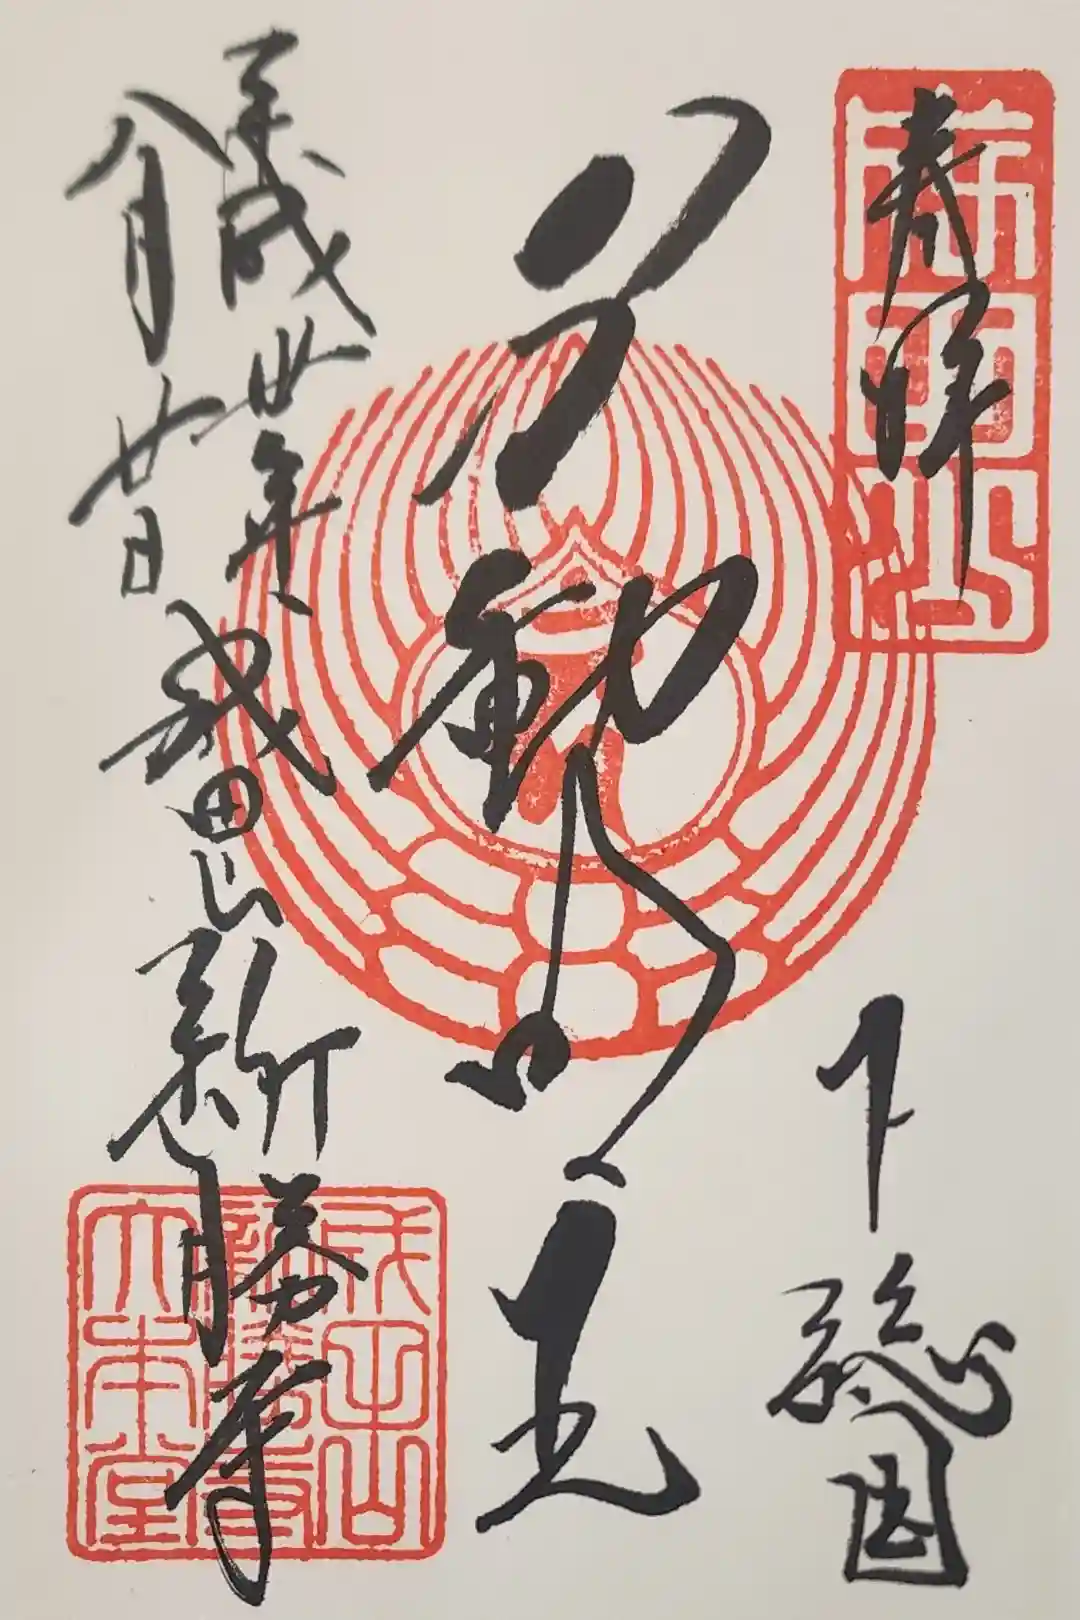 奉拝
下総国
不動明王
平成卅年
八月廿日
成田山新勝寺
成田山
新勝寺
大本堂